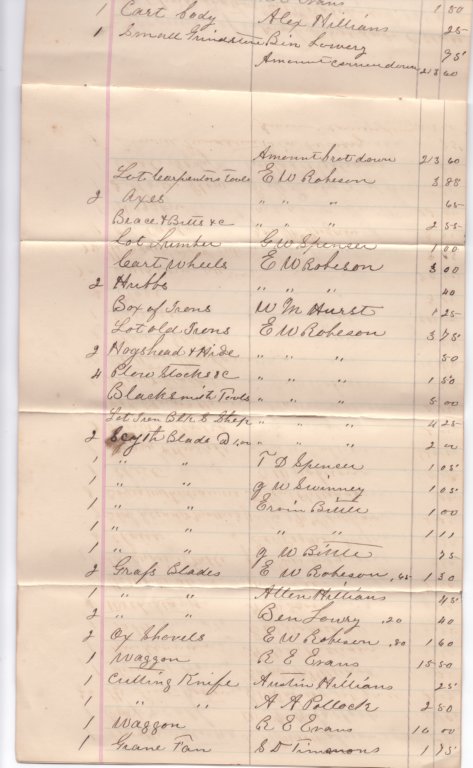 Evans 1 50
1 Cart body Alex Hillians 25
1 Small Grindstone Ben Lowery 95
Amount carried down 213 60
Amount brot down 213 60
Lot Carpentors Tools E W Robeson 3 88
2 Axes " " " 65
Brace & Bitts &c " " " 2 55
Lot Lumber G W Spenser 1 00
Cart Wheels E W Robeson 3 00
2 Hubbs " " " 40
Box of Irons W M Hurst 1 25
Lot old Irons E W Robeson 3 75
2 Hogshead & Hide " " " 50
4 Plow Stocks &c " " " 1 50
Blacksmith Tools " " " 5 00
Lot Iron Blk S Shop " " " 4 25
2 Scyth Blade @ 1,00 " " " 2 00
1 " " T D Spencer 1 05
1 " " G W Swinney 1 05
1 " " Ervin Bittle 1 00
1 " " " " 1 11
1 " " G W Bittle 75
2 Grass Blades E W Robeson .65 1 30
1 " " Allen Hillians 45
2 " " Ben Lowry .20 40
2 Ox Shovels E W Robeson .80 1 60
1 Waggon R E Evans 15 50
1 Cutting Knife Austin Hillians 25
1 " " A A Pollock 2 50
1 Waggon R E Evans 16 00
1 Grane Fan S D Timmons 1 75